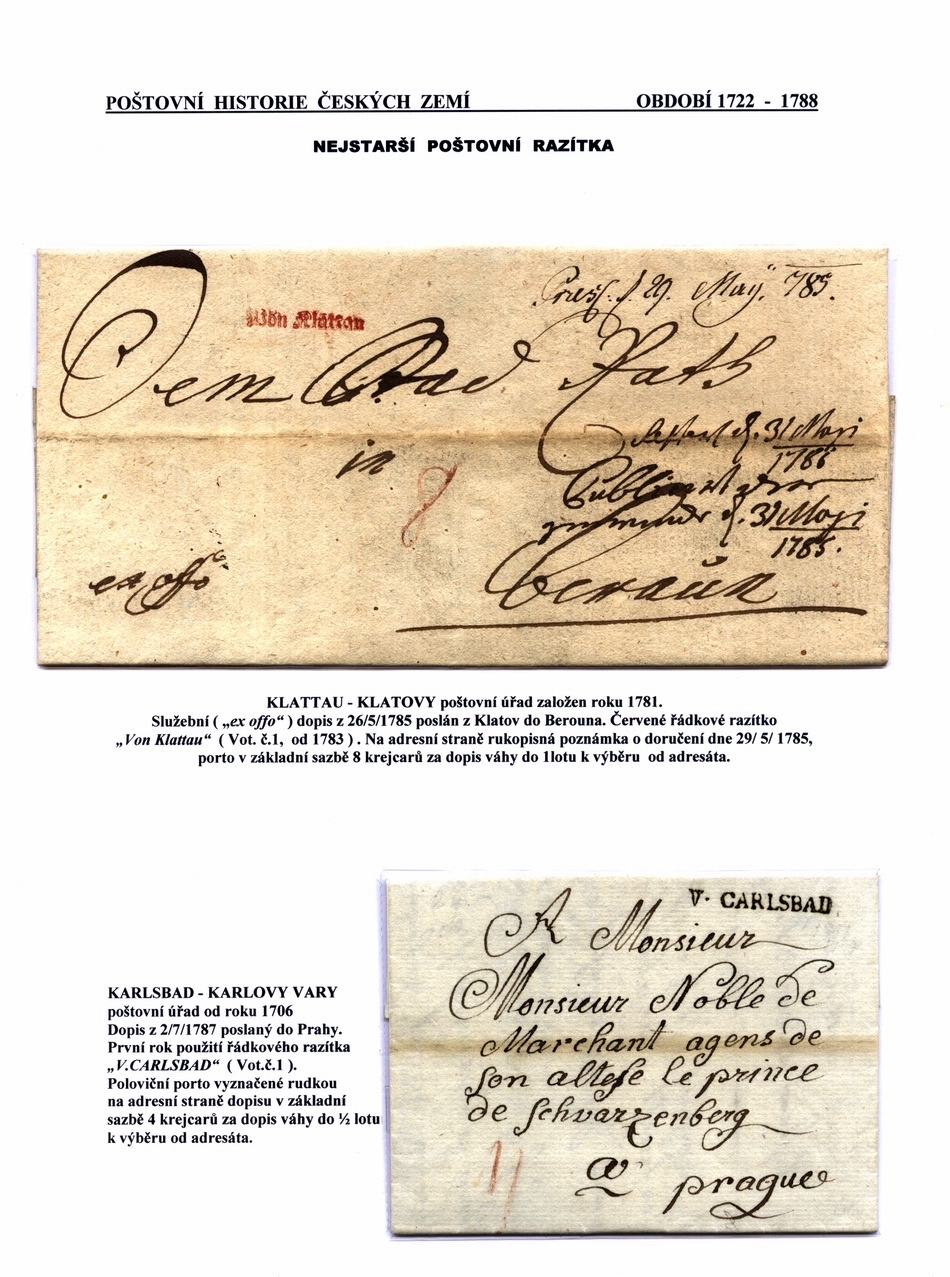 POŠTOVNÍ HISTORIE ČESKÝCH ZEMÍ OBDOBÍ 1722 - 1788
NEJSTARŠÍ POŠTOVNÍ RAZÍTKA
29. May 785.
Von Klattau
Dem Rath
31 Mayi
1785
in
8
31 Mayi
1785.
ex offo
beraun
KLATTAU - KLATOVY poštovní úřad založen roku 1781.
Služební ( „ex offo“ ) dopis z 26/5/1785 poslán z Klatov do Berouna. Červené řádkové razítko
„Von Klattau“ ( Vot. č.1, od 1783 ) . Na adresní straně rukopisná poznámka o doručení dne 29/ 5/ 1785,
porto v základní sazbě 8 krejcarů za dopis váhy do 1lotu k výběru od adresáta.
V. CARLSBAD
A Monsieur
Monsieur Noble de
Marchant agens de
son altese le prince
de Schvarzenberg
a prague
KARLSBAD - KARLOVY VARY
poštovní úřad od roku 1706
Dopis z 2/7/1787 poslaný do Prahy.
První rok použití řádkového razítka
„V.CARLSBAD“ ( Vot.č.1 ).
Poloviční porto vyznačené rudkou
na adresní straně dopisu v základní
sazbě 4 krejcarů za dopis váhy do ½ lotu
k výběru od adresáta.